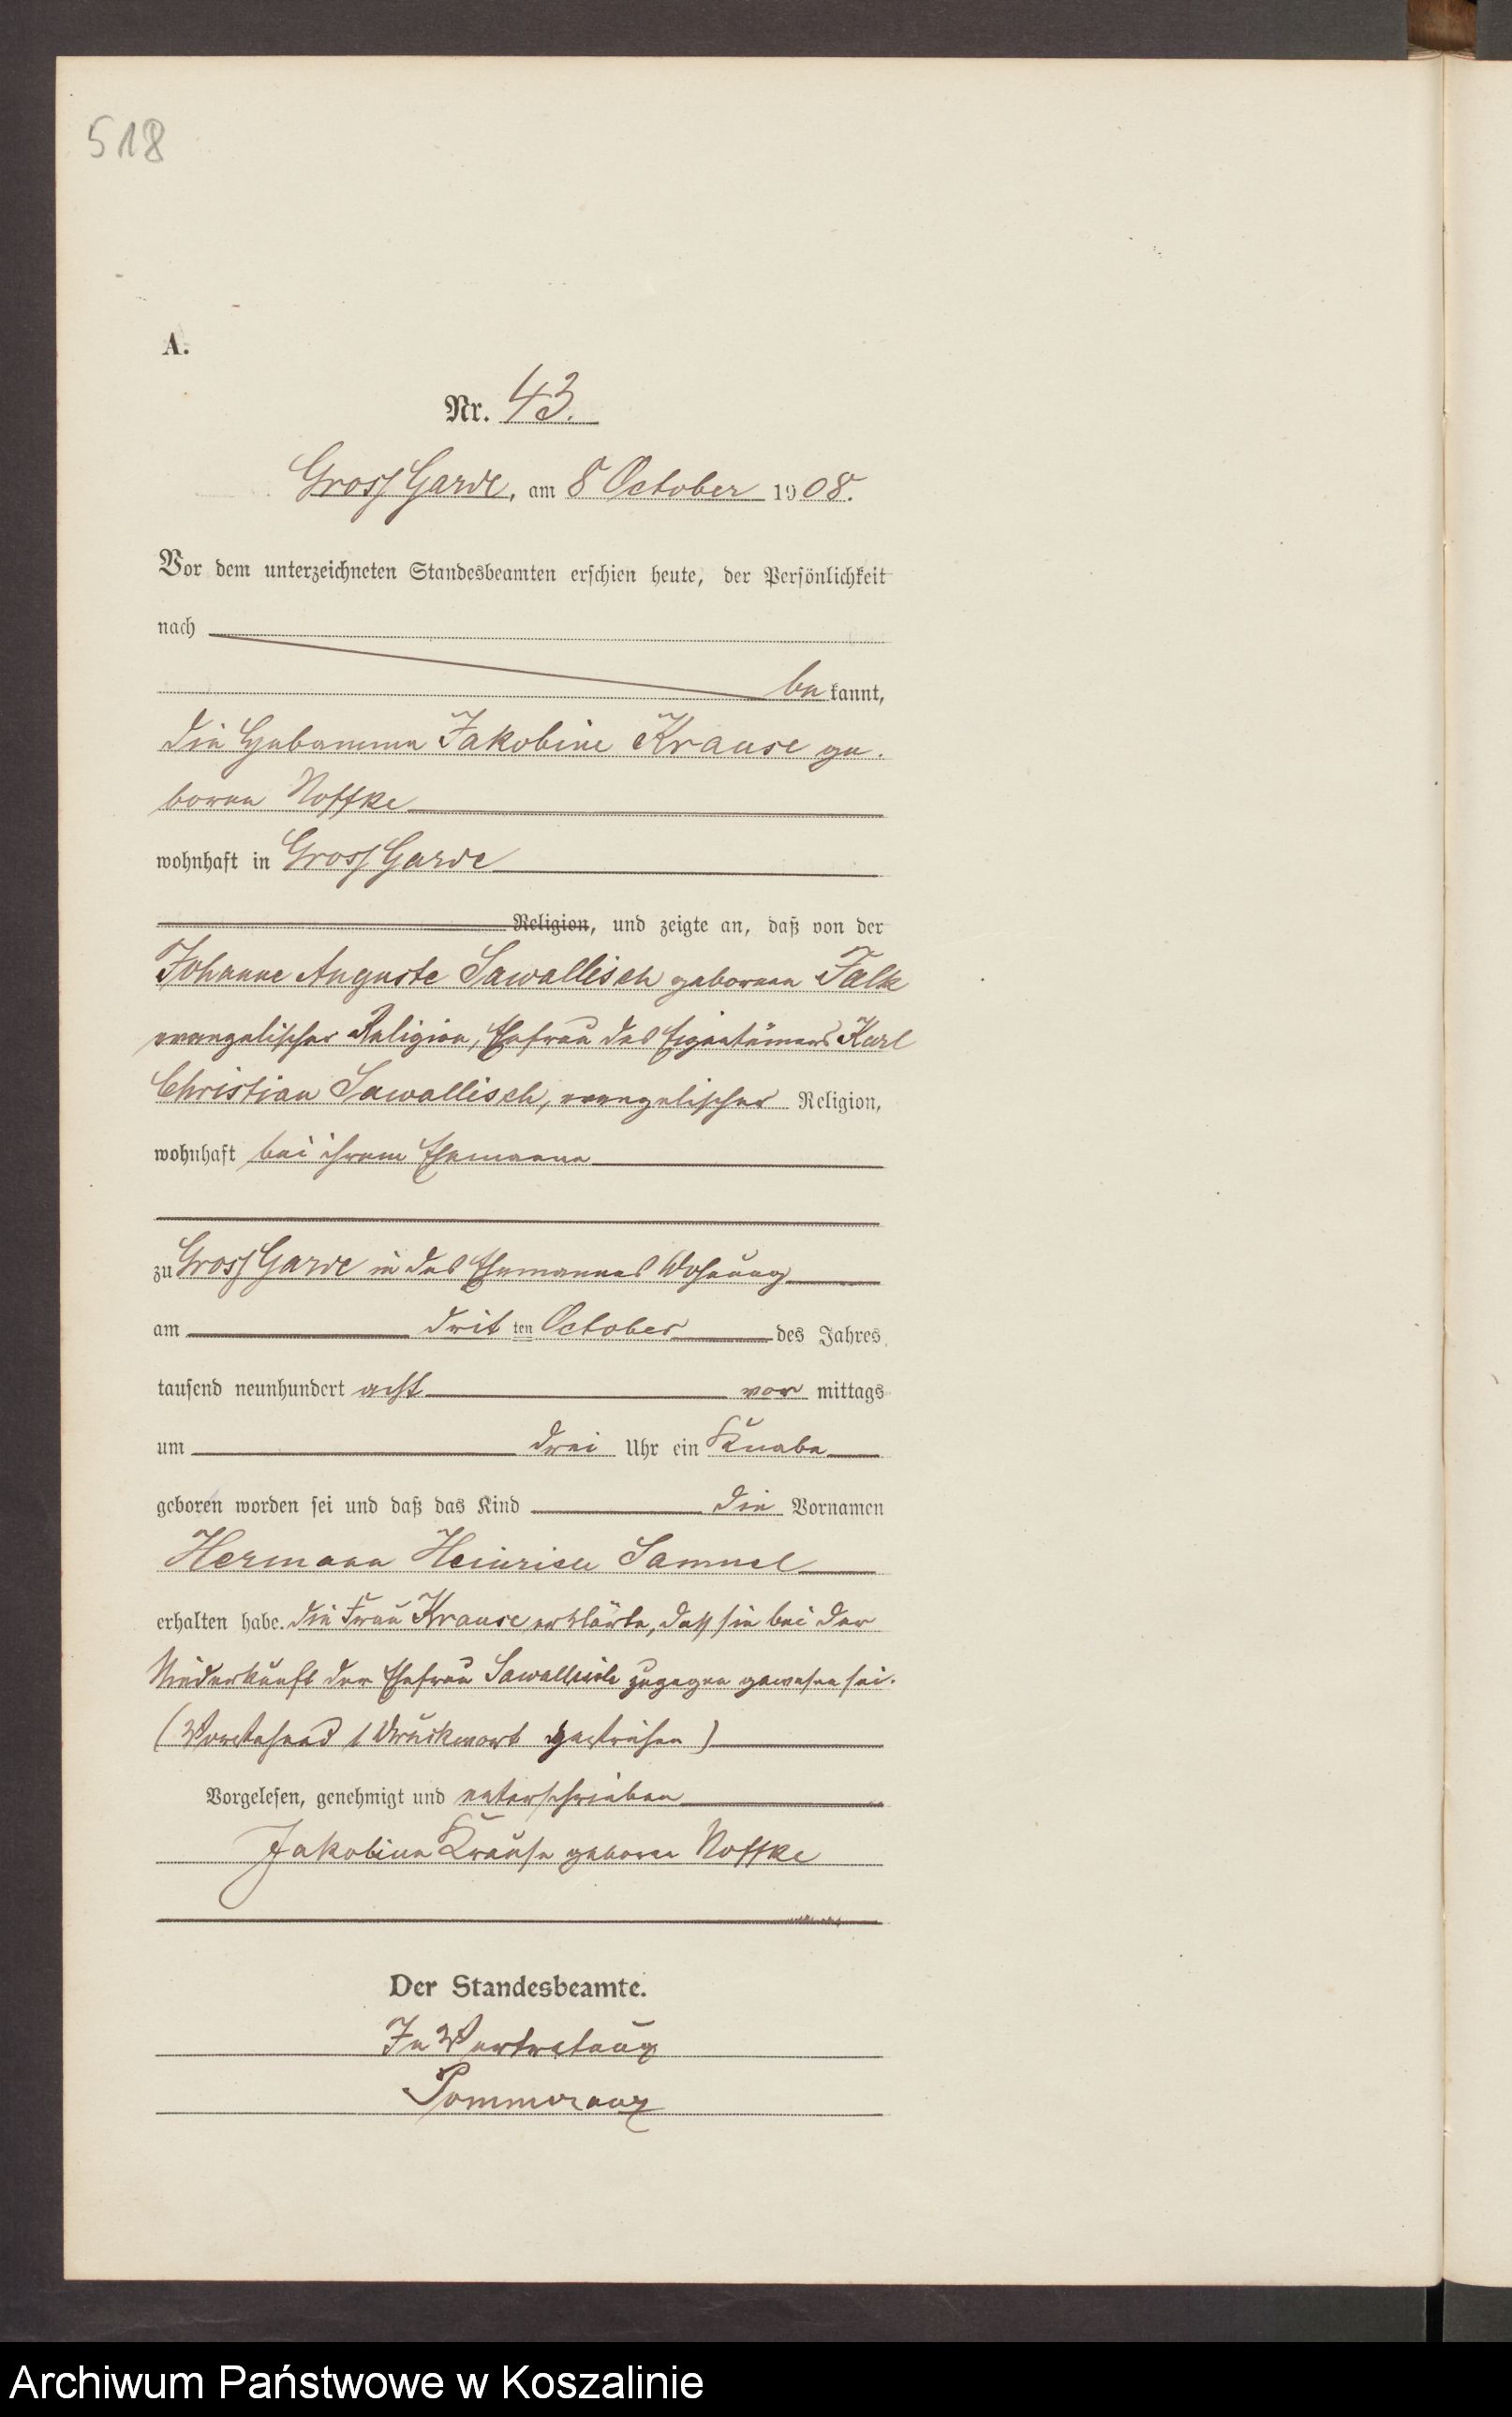 518
A.
Nr. 43.
Gross Garde, am 8 October 1908.
Vor dem unterzeichneten Standesbeamten erschien heute, der Persönlichkeit
nach
be kannt,
die Hebamme Jakobine Krause ge-
borene Noffke
wohnhaft in Gross Garde
Religion, und zeigte an, daß von der
Johanne Auguste Sawallisch geborenen Falk
evangelischer Religion, Ehefrau des Eigentümers Karl
Christian Sawallisch, evangelischer Religion,
wohnhaft bei ihrem Ehemanne
zu Gross Garde in des Ehemannes Wohnung
am drit ten October des Jahres
tausend neunhundert acht vor mittags
um drei Uhr ein Knabe
geboren worden sei und daß das Kind die Vornamen
Hermann Heinrich Samuel
erhalten habe. Die Frau Krause erklärte, dass sie bei der
Niederkunft der Ehefrau Sawallisch zugegen gewesen sei.
(Vorstehend 1 Druckwort gestrichen)
Vorgelesen, genehmigt und unterschrieben
Jakobine Krause geborene Noffke
Der Standesbeamte.
In Vertretung
Pommerenz
Archiwum Państwowe w Koszalinie